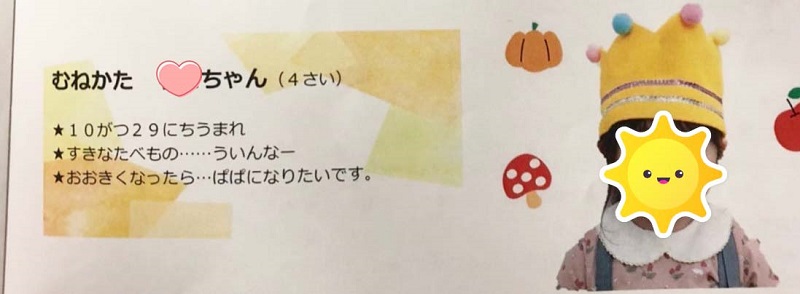 むねかた ちゃん（４さい）
★１０がつ２９にちうまれ
★すきなたべもの……ういんなー
★おおきくなったら…ぱぱになりたいです。